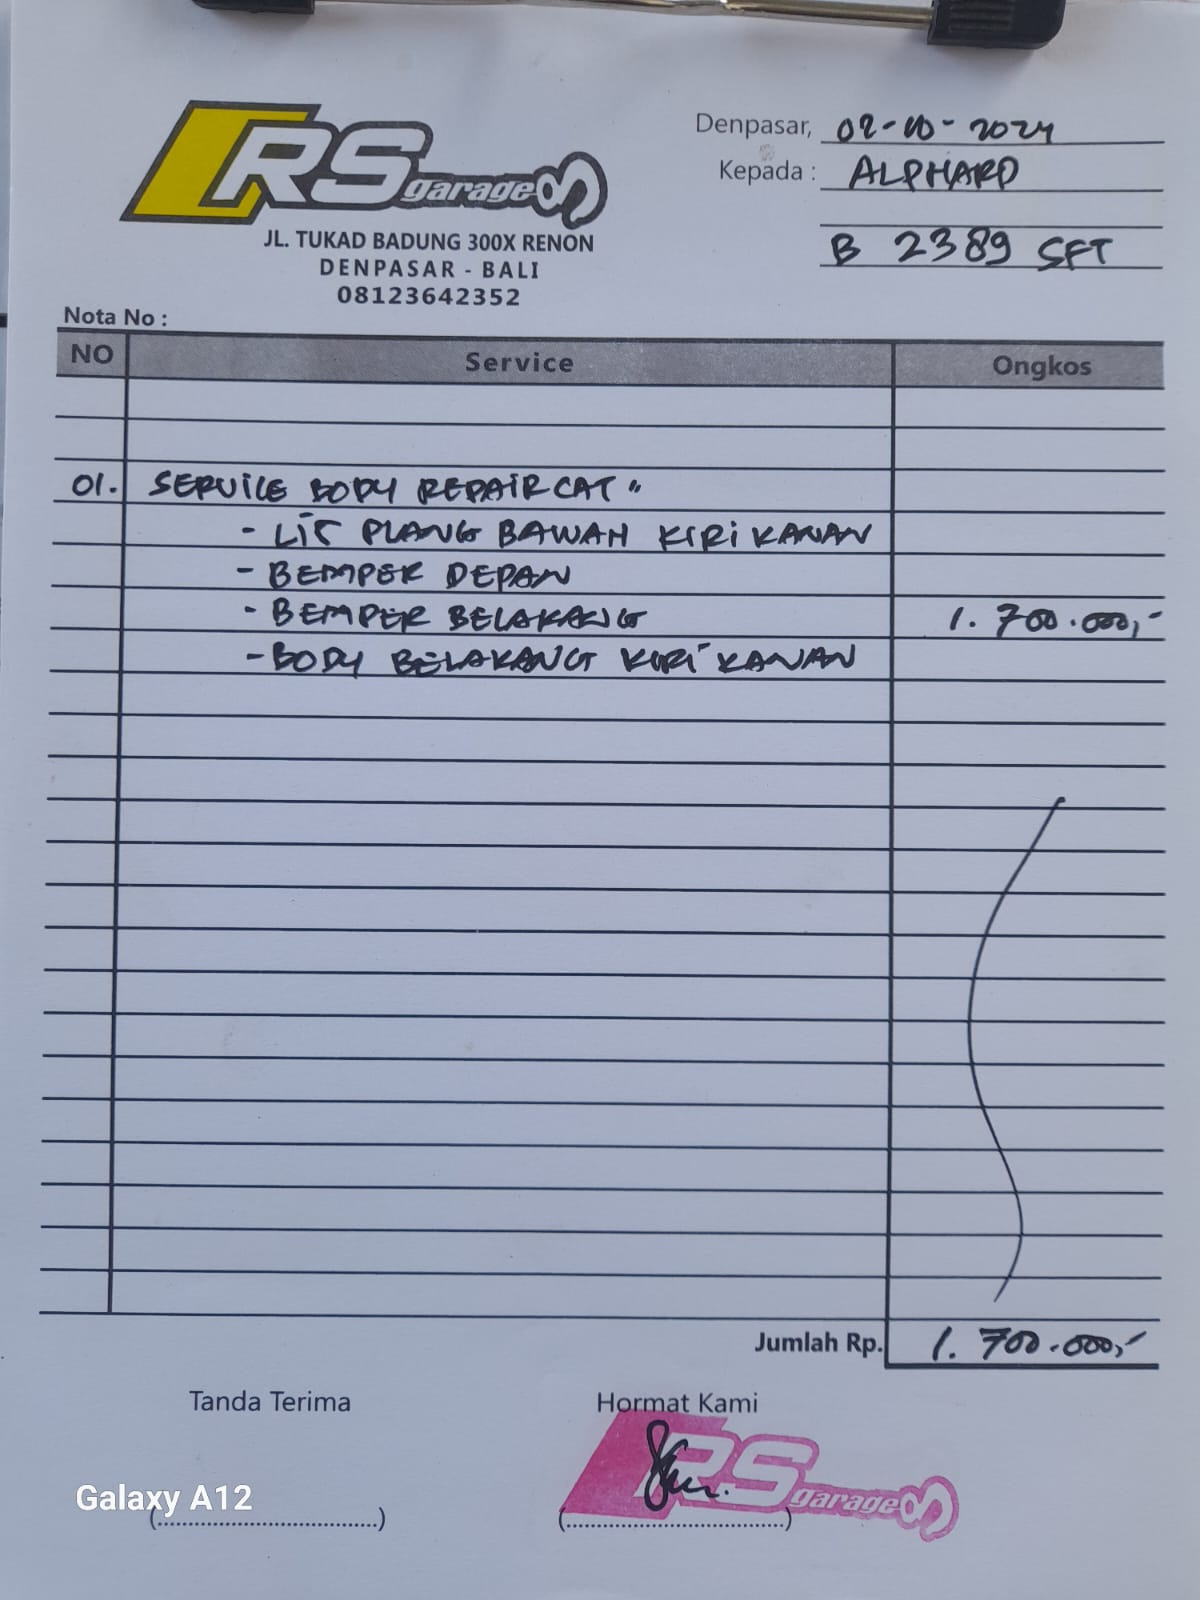 RS garage
JL. TUKAD BADUNG 300X RENON
DENPASAR - BALI
08123642352
Denpasar, 02-10-2024
Kepada : ALPHARD
B 2389 SFT
Nota No :
NO Service Ongkos
01. SERVICE BODY REPAIR CAT "
- LIS PLANG BAWAH KIRI KANAN
- BEMPER DEPAN
- BEMPER BELAKANG 1.700.000,-
- BODY BELAKANG KIRI KANAN
Jumlah Rp. 1.700.000,-
Tanda Terima Hormat Kami
RS garage
Galaxy A12
(....................................) (....................................)